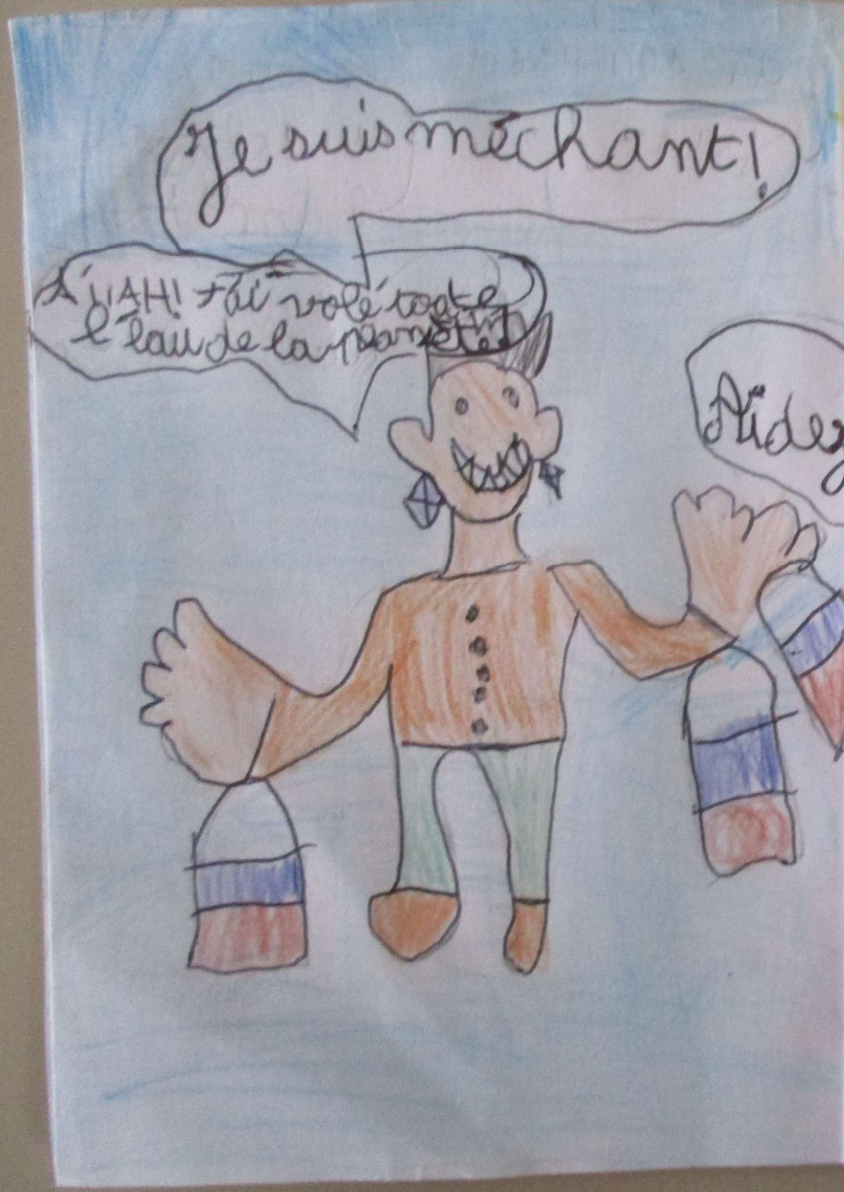 Je suis méchant!
AH! J'ai volé toute
l'eau de la planète!
Aidez